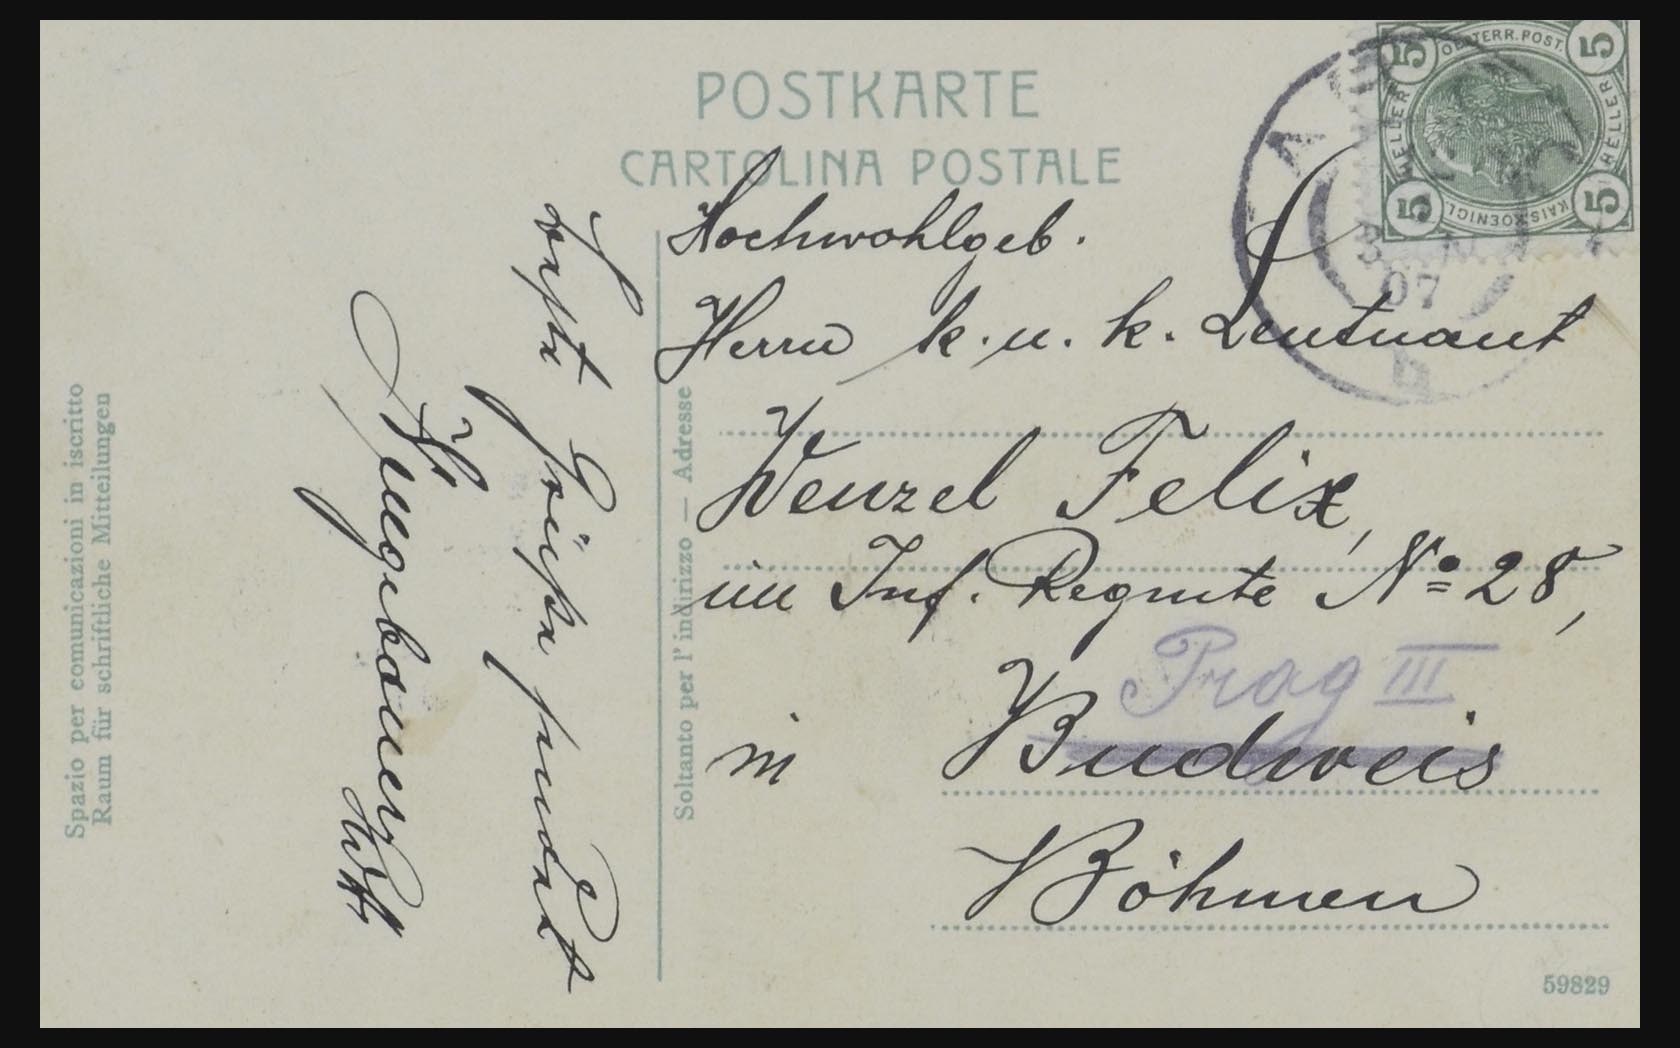 POSTKARTE
CARTOLINA POSTALE
OESTERR. POST.
HELLER
HELLER
KAIS. KOENIGL.
5
5
5
5
07
b
Hochwohlgeb.
Herrn k. u. k. Leutnant
Wenzel Felix,
im Inf. Regmte No 28,
Prag III
in Budweis
Böhmen
Grüße sendet
Spazio per comunicazioni in iscritto
Raum für schriftliche Mitteilungen
Soltanto per l' indirizzo — Adresse
59829